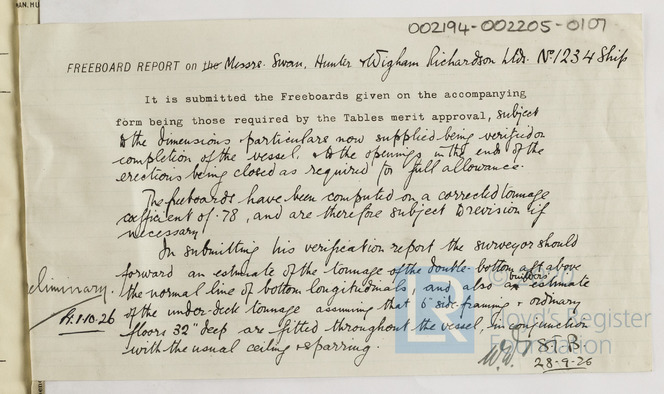 AN, HU
002194-002205-0107
FREEBOARD REPORT on the Messrs. Swan, Hunter & Wigham Richardson Ltd. No 1234 Ship
It is submitted the Freeboards given on the accompanying
form being those required by the Tables merit approval, subject
to the dimensions & particulars now supplied being verified on
completion of the vessel, & to the openings in the ends of the
erections being closed as required for full allowance.
The freeboards have been computed on a corrected tonnage
coefficient of .78, and are therefore subject to revision if
necessary
In submitting his verification report the surveyor should
forward an estimate of the tonnage of the double-bottom aft above
the normal line of bottom longitudinals, and also an builders' estimate
of the under-deck tonnage assuming that 6" side-framing & ordinary
floors 32" deep are fitted throughout the vessel, in conjunction
with the usual ceiling & sparring.
eliminary.
1.10.26
STB
28-9-26
LR
Lloyd's Register
Foundation